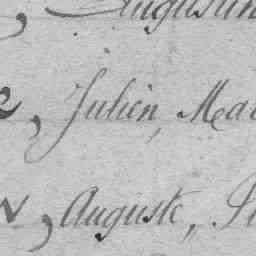 , Augustin
e, Julien, Ma
, Auguste,